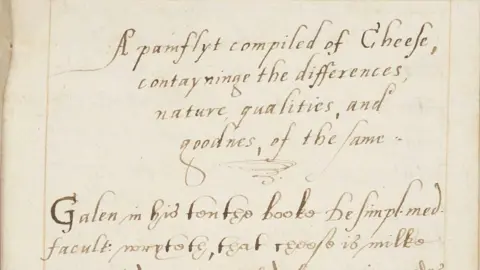 A pamflyt compiled of Cheese,
contayninge the differences,
nature, qualities, and
goodnes, of the same.
Galen in his tenthe booke de simpl. med.
facult. wryteth, that cheese is milke